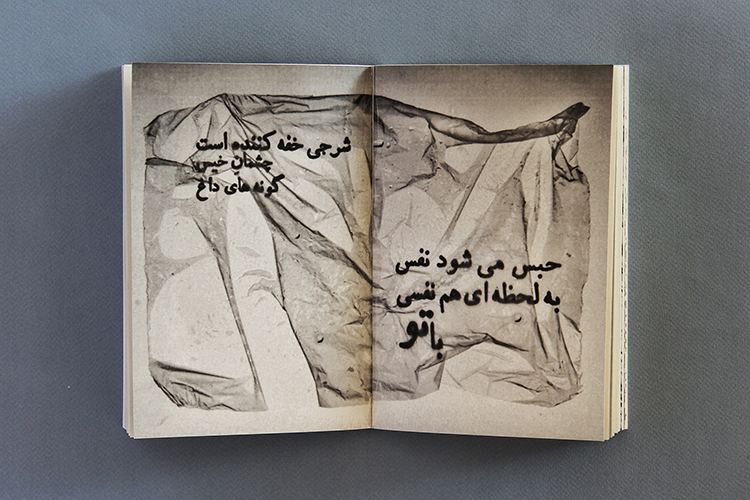 شرجی خفه کننده است
چشمان خیس
گونه های داغ
حبس می شود نفس
به لحظه ای هم نفسی
با تو